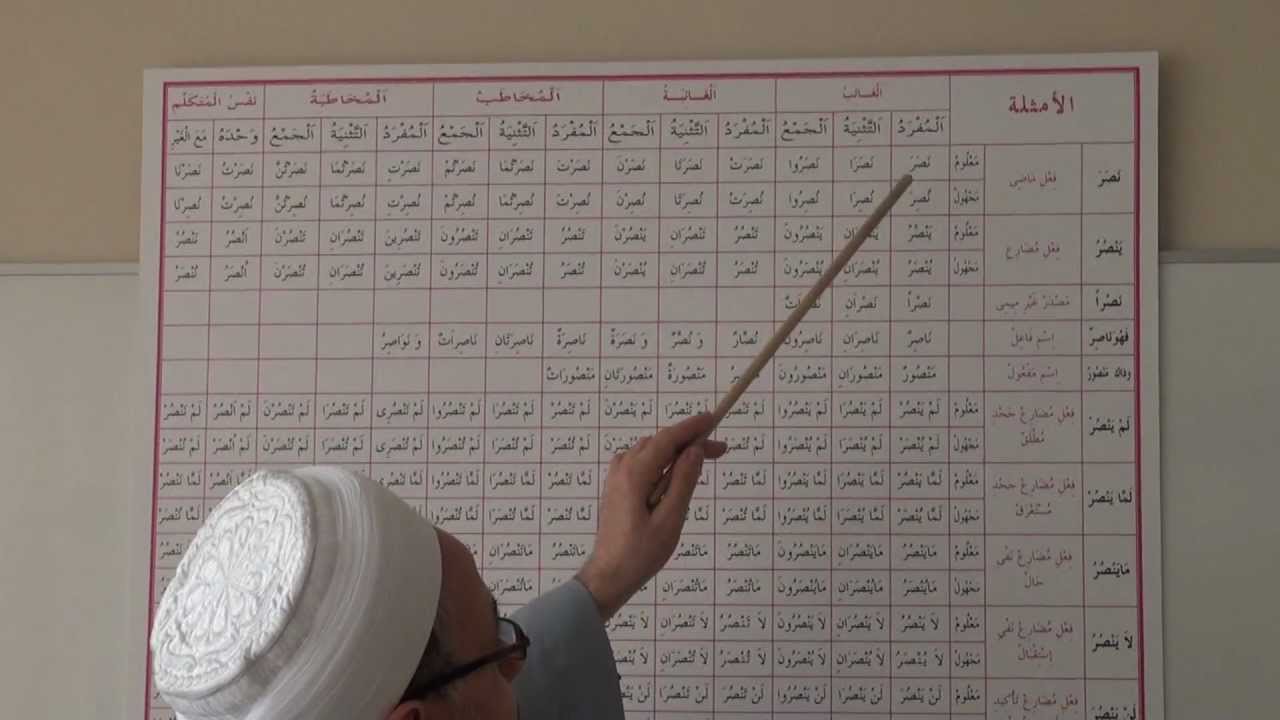 الأمثلة الغائب الغائبة اَلْمُخَاطَبُ اَلْمُخَاطَبَةُ نَفْسُ الْمُتَكَلِّمِ
اَلْمُفْرَدُ اَلتَّثْنِيَةُ اَلْجَمْعُ اَلْمُفْرَدُ اَلتَّثْنِيَةُ اَلْجَمْعُ اَلْمُفْرَدُ اَلتَّثْنِيَةُ اَلْجَمْعُ اَلْمُفْرَدُ اَلتَّثْنِيَةُ اَلْجَمْعُ وَحْدَهُ مَعَ الْغَيْرِ
نَصَرَ فِعْل مَاضِى مَعْلُومْ نَصَرَ نَصَرَا نَصَرُوا نَصَرَتْ نَصَرَتَا نَصَرْنَ نَصَرْتَ نَصَرْتُمَا نَصَرْتُمْ نَصَرْتِ نَصَرْتُمَا نَصَرْتُنَّ نَصَرْتُ نَصَرْنَا
مَجْهُولْ نُصِرَ نُصِرَا نُصِرُوا نُصِرَتْ نُصِرَتَا نُصِرْنَ نُصِرْتَ نُصِرْتُمَا نُصِرْتُمْ نُصِرْتِ نُصِرْتُمَا نُصِرْتُنَّ نُصِرْتُ نُصِرْنَا
يَنْصُرُ فِعْل مُضَارِعْ مَعْلُومْ يَنْصُرُ يَنْصُرَانِ يَنْصُرُونَ تَنْصُرُ تَنْصُرَانِ يَنْصُرْنَ تَنْصُرُ تَنْصُرَانِ تَنْصُرُونَ تَنْصُرِينَ تَنْصُرَانِ تَنْصُرْنَ اَنْصُرُ نَنْصُرُ
مَجْهُولْ يُنْصَرُ يُنْصَرَانِ يُنْصَرُونَ تُنْصَرُ تُنْصَرَانِ يُنْصَرْنَ تُنْصَرُ تُنْصَرَانِ تُنْصَرُونَ تُنْصَرِينَ تُنْصَرَانِ تُنْصَرْنَ اُنْصَرُ نُنْصَرُ
نَصْراً مَصْدَرْ غَيْرِ مِيمِى نَصْراً نَصْرَانِ
فَهُوَ نَاصِرٌ اِسْم فَاعِلْ نَاصِرٌ نَاصِرَانِ نَاصِرُونَ نُصَّارٌ وَ نُصَّرٌ وَ نَصَرَةٌ نَاصِرَةٌ نَاصِرَتَانِ نَاصِرَاتٌ وَ نَوَاصِرُ
وذاك مَنْصُورٌ اِسْم مَفْعُولْ مَنْصُورٌ مَنْصُورَانِ مَنْصُورُونَ مَنْصُورَةٌ مَنْصُورَتَانِ مَنْصُورَاتٌ
لَمْ يَنْصُرْ فِعْل مُضَارِعْ جَحْدِ مَعْلُومْ لَمْ يَنْصُرْ لَمْ يَنْصُرَا لَمْ يَنْصُرُوا لَمْ تَنْصُرْ لَمْ تَنْصُرَا لَمْ يَنْصُرْنَ لَمْ تَنْصُرْ لَمْ تَنْصُرَا لَمْ تَنْصُرُوا لَمْ تَنْصُرِى لَمْ تَنْصُرَا لَمْ تَنْصُرْنَ لَمْ اَنْصُرْ لَمْ نَنْصُرْ
مُطْلَقْ مَجْهُولْ لَمْ يُنْصَرْ لَمْ يُنْصَرَا لَمْ يُنْصَرُوا لَمْ تُنْصَرْ لَمْ تُنْصَرْ لَمْ تُنْصَرَا لَمْ تُنْصَرُوا لَمْ تُنْصَرِى لَمْ تُنْصَرَا لَمْ تُنْصَرْنَ لَمْ اُنْصَرْ لَمْ نُنْصَرْ
لَمَّا يَنْصُرْ فِعْل مُضَارِعْ جَحْدِ مَعْلُومْ لَمَّا يَنْصُرْ لَمَّا يَنْصُرَا لَمَّا يَنْصُرُوا لَمَّا تَنْصُرْ لَمَّا تَنْصُرْ لَمَّا تَنْصُرَا لَمَّا تَنْصُرُوا
مُسْتَغْرَقْ مَجْهُولْ لَمَّا يُنْصَرْ لَمَّا يُنْصَرَا لَمَّا يُنْصَرُوا لَمَّا تُنْصَرْ لَمَّا تُنْصَرْ لَمَّا تُنْصَرَا
مَايَنْصُرُ فِعْل مُضَارِعْ نَفْىِ مَعْلُومْ مَايَنْصُرُ مَايَنْصُرَانِ مَايَنْصُرُونَ مَاتَنْصُرُ مَاتَنْصُرُ مَاتَنْصُرَانِ
حَالْ مَجْهُولْ مَايُنْصَرُ مَايُنْصَرَانِ مَايُنْصَرُونَ مَاتُنْصَرُ مَاتُنْصَرَانِ مَاتُنْصَرَانِ
لَا يَنْصُرُ فِعْل مُضَارِعْ نَفْىِ مَعْلُومْ لَا يَنْصُرُ لَا يَنْصُرَانِ لَا يَنْصُرُونَ لَا تَنْصُرُ لَا تَنْصُرَانِ
اِسْتِقْبَالْ مَجْهُولْ لَا يُنْصَرُ لَا يُنْصَرَانِ لَا يُنْصَرُونَ لَا تُنْصَرُ لَا تُنْصَرَانِ
لَنْ يَنْصُرَ فِعْل مُضَارِعْ تَأْكِيدِ مَعْلُومْ لَنْ يَنْصُرَ لَنْ يَنْصُرَا لَنْ يَنْصُرُوا لَنْ تَنْصُرَ لَنْ تَنْصُرَا